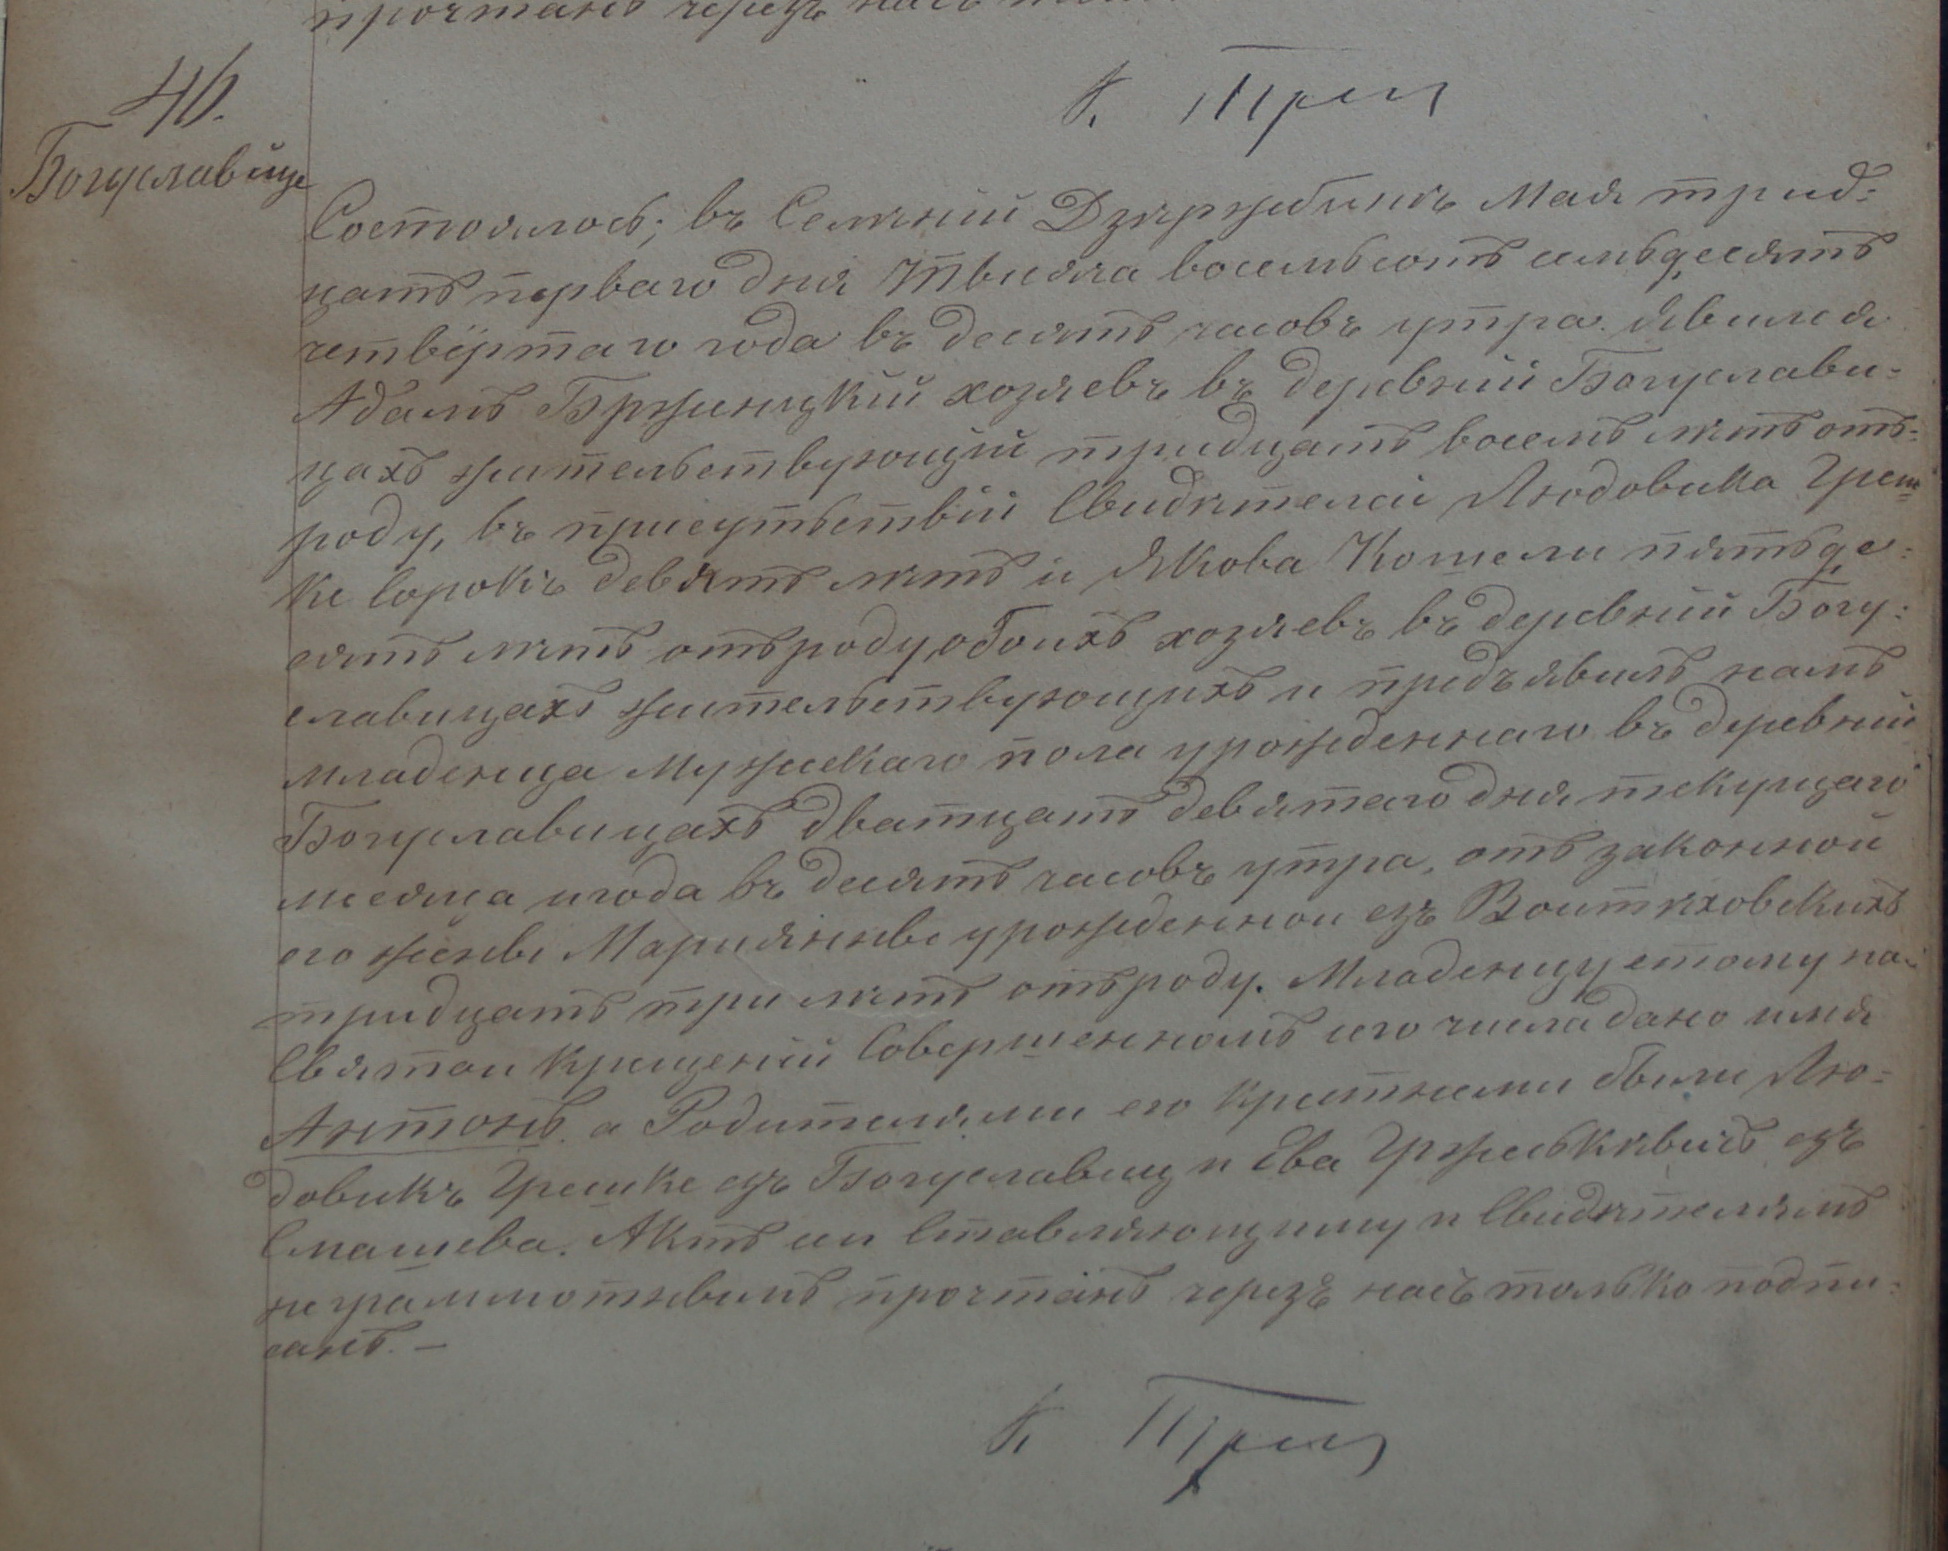 прочтанъ черезъ насъ
К. Трец
46.
Богуславице
Состоялось; въ Селѣнiи Дзѣржбинѣ Мая трид:
цать перваго дня Твисяча восемьсотъ семьдесятъ
четвёртаго года въ десять часовъ утра. Явился
Адамъ Бржиницкiй хозяевъ въ деревнiи Богуслави-
цахъ жительствующiй тридцать восемъ лѣтъ отъ-
роду, въ присутствiи Свидѣтелей Людовика Греш
ке сорокъ девять лѣтъ и Якова Котели пятьде-
сятъ лѣтъ отъроду, обоихъ хозяевъ въ деревнiи Богу-
славицахъ жительствующихъ и предъявилъ намъ
младенца мужескаго пола урожденнаго въ деревнiи
Богуславицахъ дватцать девятаго дня текущаго
месяца и года въ десятъ часовъ утра, отъ законной
его жены Марiянны урожденной езъ
тридцать три лѣтъ отъроду. Младенцу етому на
Святои Крещенiи Совершенномъ его числа дано имя
Антонъ. а Родителями его крестными были Лю-
довикъ Грешке езъ Богуславиц и Ева езъ
Смашева. Актъ сiи Ставляющиму и Свидѣтелямъ
неграммотнымъ прочтанъ черезъ насъ только подпи-
санъ. —
К. Трец